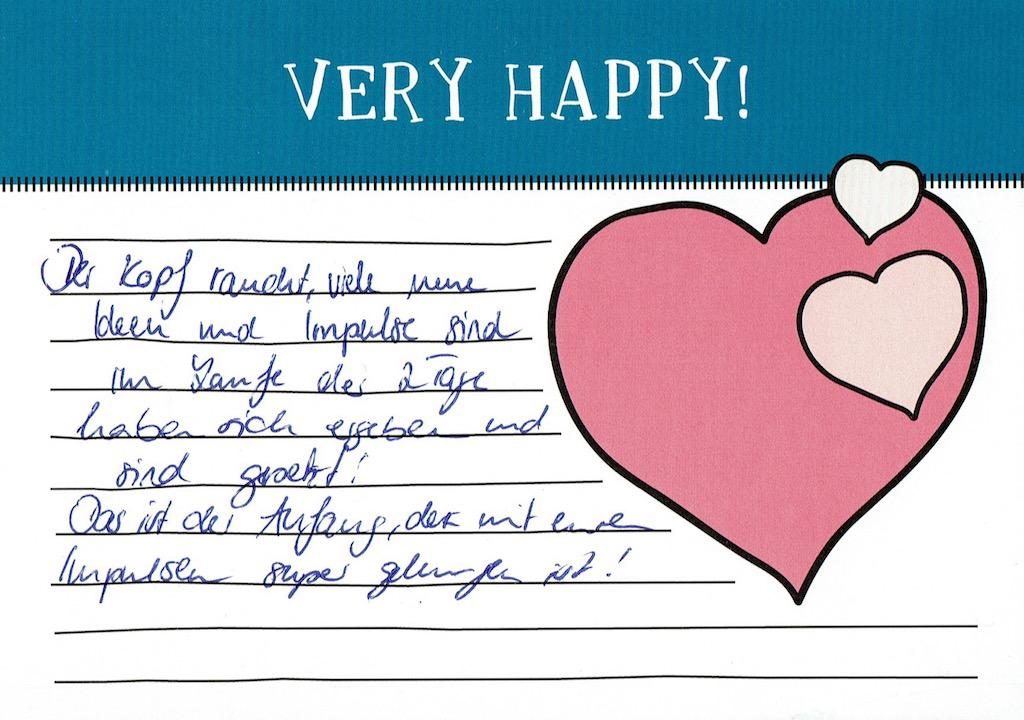 VERY HAPPY!
Der Kopf raucht, viele neue
Ideen und Impulse sind
im Laufe der 2 Tage
haben sich ergeben und
sind gesetzt!
Das ist der Anfang, der mit euren
Impulsen super gelungen ist!